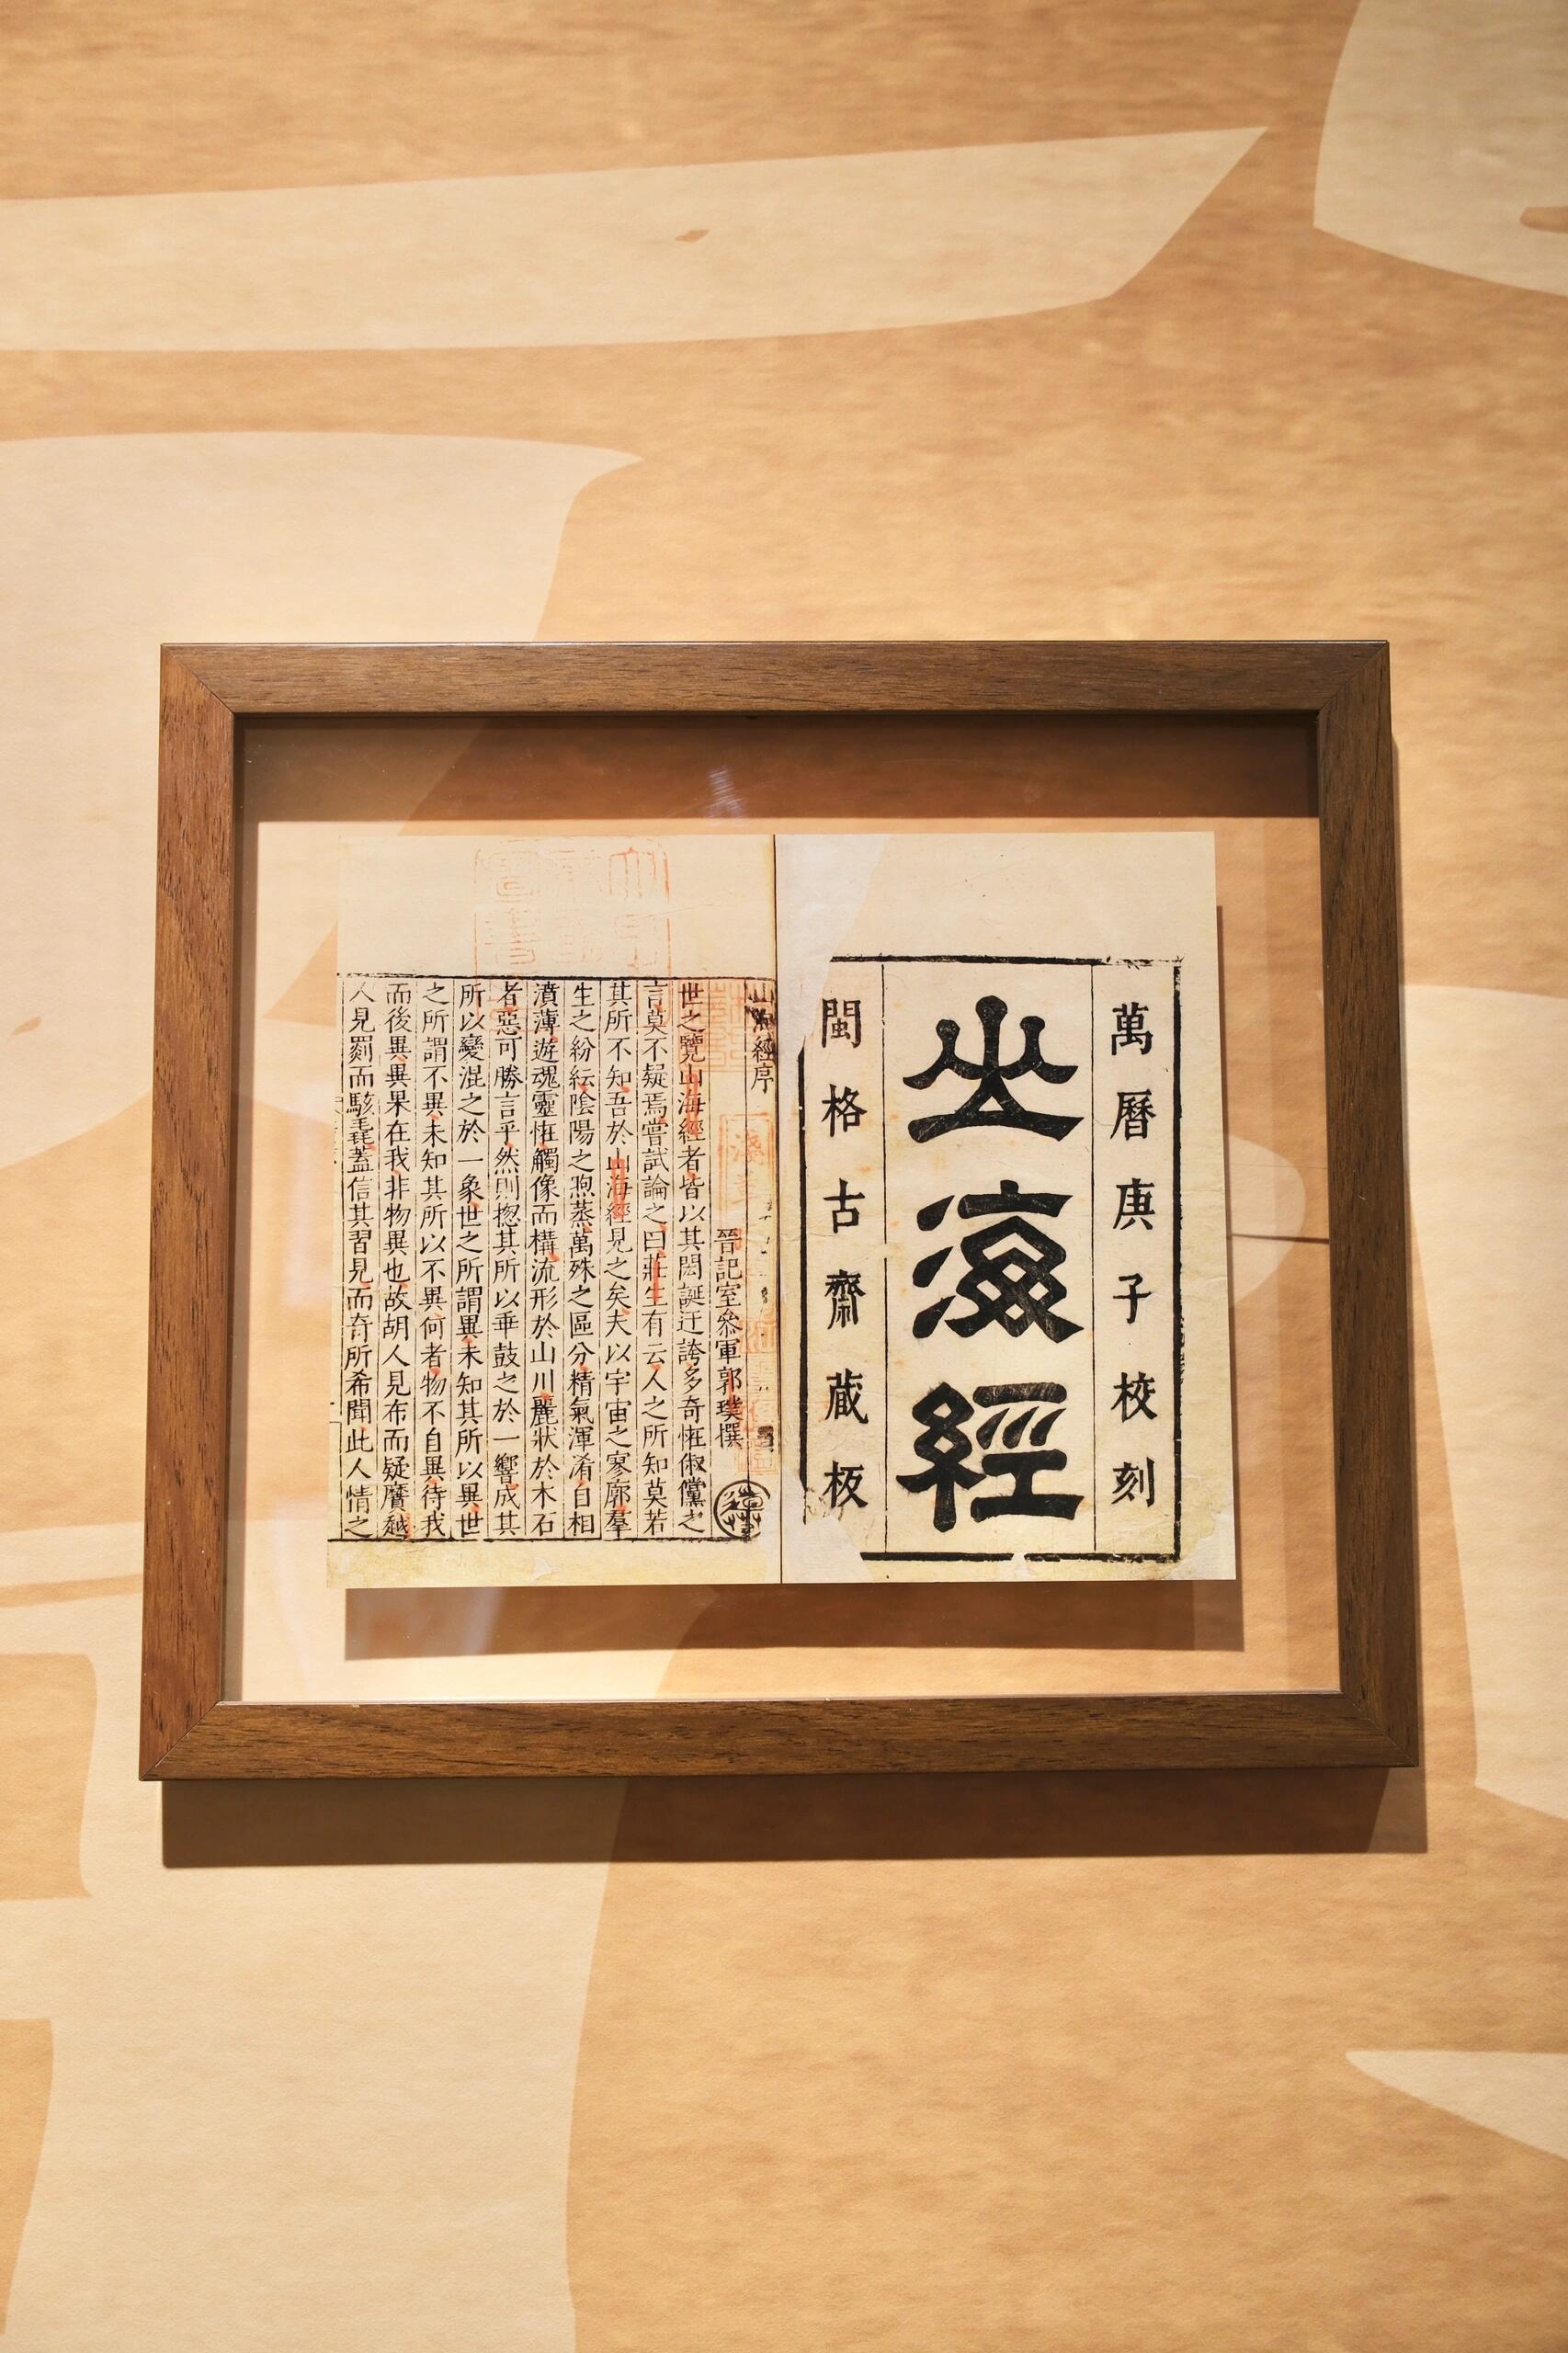 萬曆庚子校刻
山海經
閩格古齋蔵板
山海經序
晉記室叅軍郭璞撰
世之覽山海經者皆以其閎誕迂誇多奇恠俶儻之
言莫不疑焉嘗試論之曰莊生有云人之所知莫若
其所不知吾於山海經見之矣夫以宇宙之寥廓羣
生之紛紜陰陽之煦蒸萬殊之區分精氣渾淆自相
濆薄遊魂靈恠觸像而構流形於山川麗狀於木石
者惡可勝言乎然則揔其所以乖鼓之於一響成其
所以變混之於一象世之所謂異未知其所以異世
之所謂不異未知其所以不異何者物不自異待我
而後異異果在我非物異也故胡人見布而疑黂越
人見罽而駭毳蓋信其習見而奇所希聞此人情之